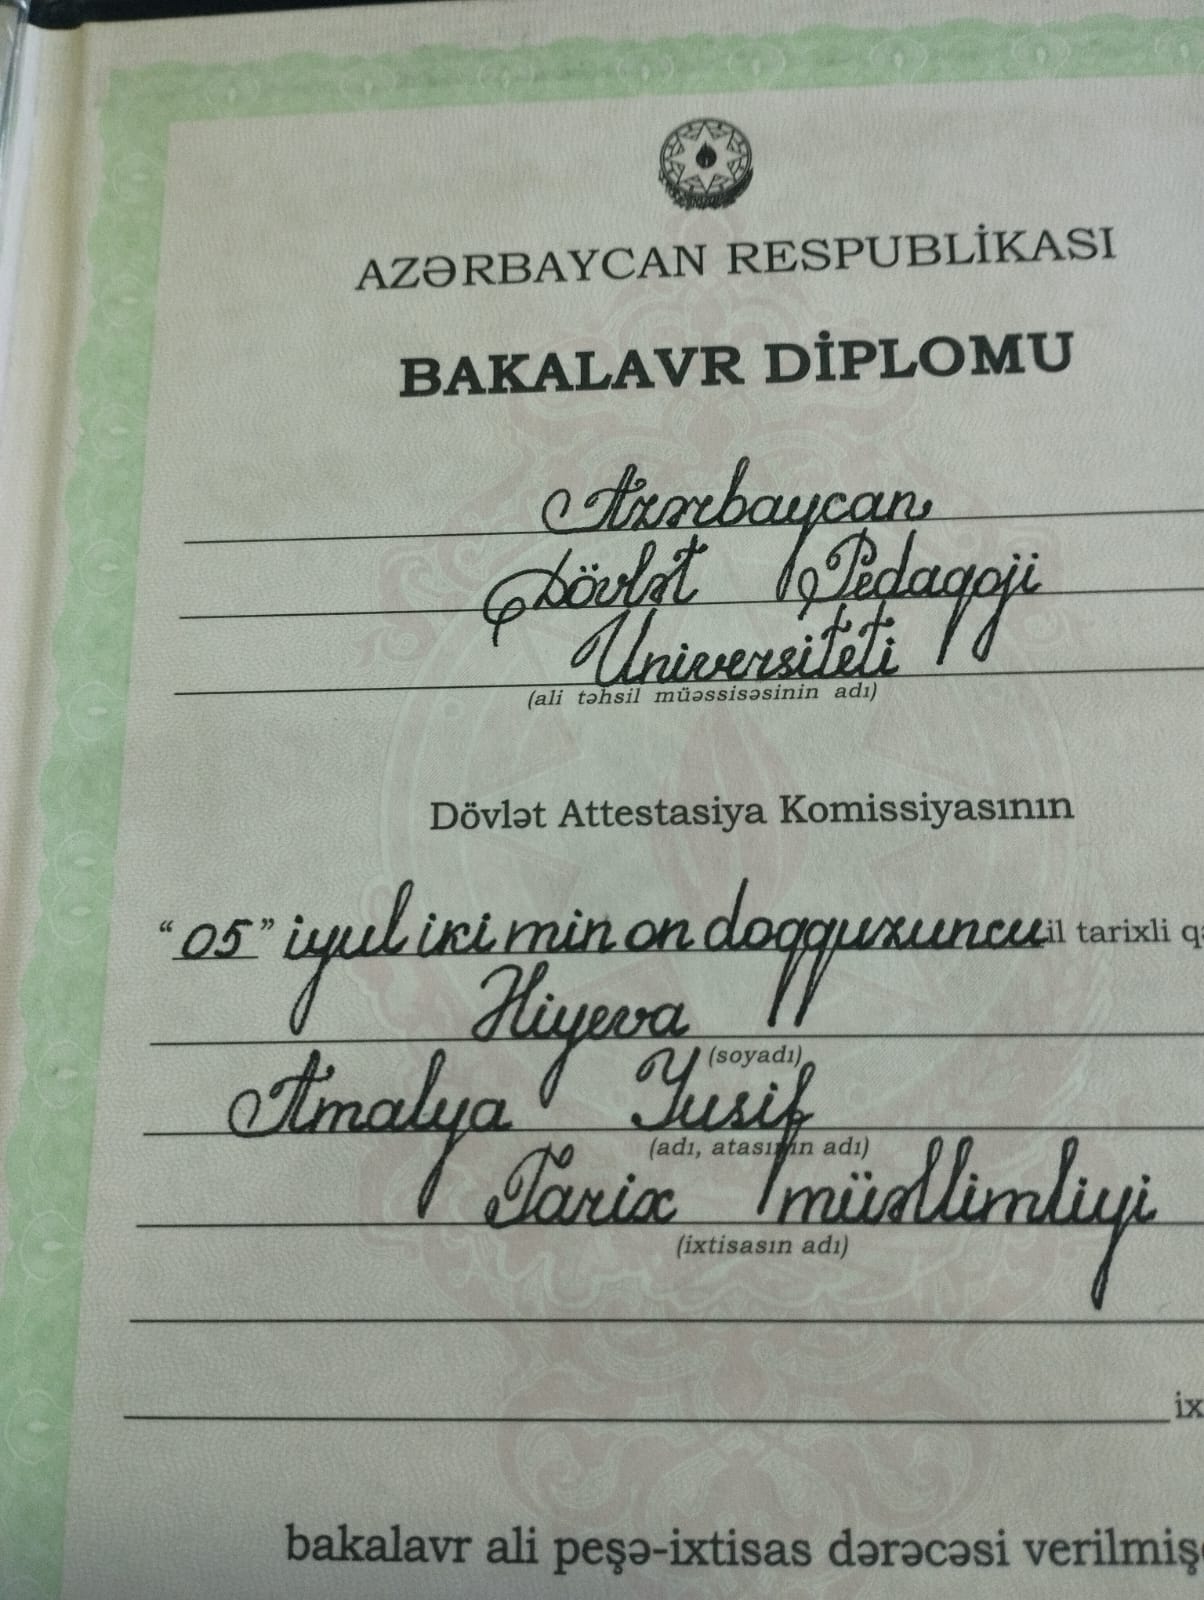 AZƏRBAYCAN RESPUBLİKASI
BAKALAVR DİPLOMU
Azərbaycan
Dövlət Pedaqoji
Universiteti
(ali təhsil müəssisəsinin adı)
Dövlət Attestasiya Komissiyasının
“05” iyul iki min on doqquzuncu il tarixli
Əliyeva
(soyadı)
Amalya Yusif
(adı, atasının adı)
Tarix müəllimliyi
(ixtisasın adı)
ix
bakalavr ali peşə-ixtisas dərəcəsi